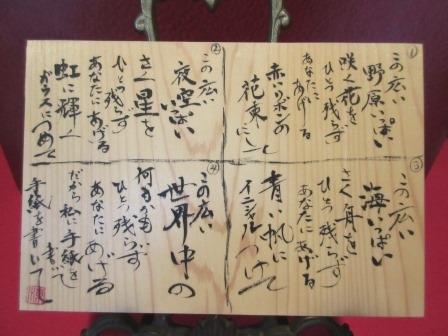 ①
この広い
野原いっぱい
咲く花を
ひとつ残らず
あなたに
あげる
赤いリボンの
花束にして
②
この広い
夜空いっぱい
さく星を
ひとつ残らず
あなたにあげる
虹に輝く
ガラスにつめて
③
この広い
海いっぱい
さく舟を
ひとつ残らず
あなたにあげる
青い帆に
イニシャルつけて
④
この広い
世界中の
何もかも
ひとつ残らず
あなたにあげる
だから私に手紙を
書いて
手紙を書いて